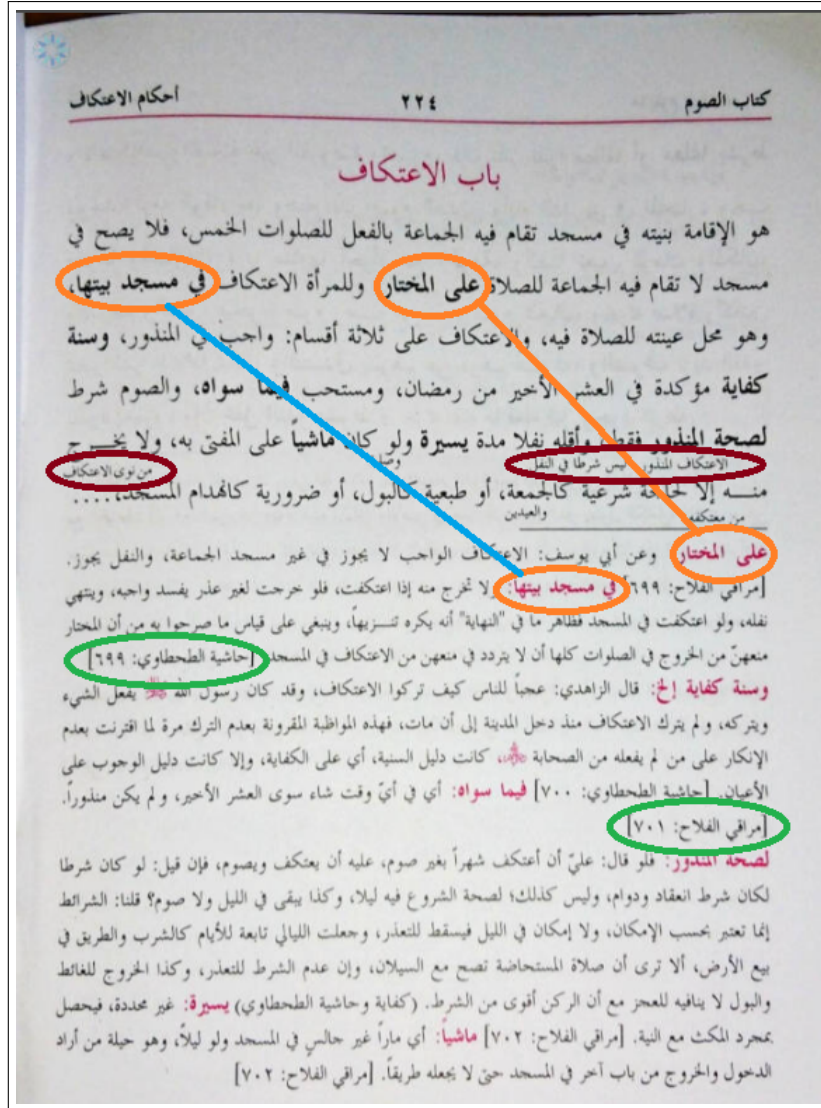 كتاب الصوم ٢٢٤ أحكام الاعتكاف
باب الاعتكاف
هو الإقامة بنيته في مسجد تقام فيه الجماعة بالفعل للصلوات الخمس، فلا يصح في
مسجد لا تقام فيه الجماعة للصلاة على المختار وللمرأة الاعتكاف في مسجد بيتها،
وهو محل عينته للصلاة فيه، والاعتكاف على ثلاثة أقسام: واجب في المنذور، وسنة
كفاية مؤكدة في العشر الأخير من رمضان، ومستحب فيما سواه، والصوم شرط
لصحة المنذور فقط، وأقله نفلا مدة يسيرة ولو كان ماشيا على المفتى به، ولا يخـــرج
الاعتكاف المنذور ليس شرطا في النفل وصل من نوى الاعتكاف
منـــه إلا لحاجة شرعية كالجمعة، أو طبعية كالبول، أو ضرورية كانهدام المسجد،....
من معتكفه والعيدين
على المختار وعن أبي يوسف: الاعتكاف الواجب لا يجوز في غير مسجد الجماعة، والنفل يجوز.
[مراقي الفلاح: ٦٩٩] في مسجد بيتها: ولا تخرج منه إذا اعتكفت، فلو خرجت لغير عذر يفسد واجبه، وينتهي
نفله، ولو اعتكفت في المسجد فظاهر ما في "النهاية" أنه يكره تنـــزيهاً، وينبغي على قياس ما صرحوا به من أن المختار
منعهنّ من الخروج في الصلوات كلها أن لا يتردد في منعهن من الاعتكاف في المسجد. [حاشية الطحطاوي: ٦٩٩]
وسنة كفاية إلخ: قال الزاهدي: عجباً للناس كيف تركوا الاعتكاف، وقد كان رسول الله ﷺ يفعل الشيء
ويتركه، ولم يترك الاعتكاف منذ دخل المدينة إلى أن مات، فهذه المواظبة المقرونة بعدم الترك مرة لما اقترنت بعدم
الإنكار على من لم يفعله من الصحابة ﷺ، كانت دليل السنية، أي على الكفاية، وإلا كانت دليل الوجوب على
الأعيان. [حاشية الطحطاوي: ٧٠٠] فيما سواه: أي في أيّ وقت شاء سوى العشر الأخير، ولم يكن منذوراً.
[مراقي الفلاح: ٧٠١]
لصحة المنذور: فلو قال: عليّ أن أعتكف شهراً بغير صوم، عليه أن يعتكف ويصوم، فإن قيل: لو كان شرطا
لكان شرط انعقاد ودوام، وليس كذلك؛ لصحة الشروع فيه ليلا، وكذا يبقى في الليل ولا صوم؟ قلنا: الشرائط
إنما تعتبر بحسب الإمكان، ولا إمكان في الليل فيسقط للتعذر، وجعلت الليالي تابعة للأيام كالشرب والطريق في
بيع الأرض، ألا ترى أن صلاة المستحاضة تصح مع السيلان، وإن عدم الشرط للتعذر، وكذا الخروج للغائط
والبول لا ينافيه للعجز مع أن الركن أقوى من الشرط. (كفاية وحاشية الطحطاوي) يسيرة: غير محددة، فيحصل
بمجرد المكث مع النية. [مراقي الفلاح: ٧٠٢] ماشياً: أي ماراً غير جالس في المسجد ولو ليلاً، وهو حيلة من أراد
الدخول والخروج من باب آخر في المسجد حتى لا يجعله طريقاً. [مراقي الفلاح: ٧٠٢]